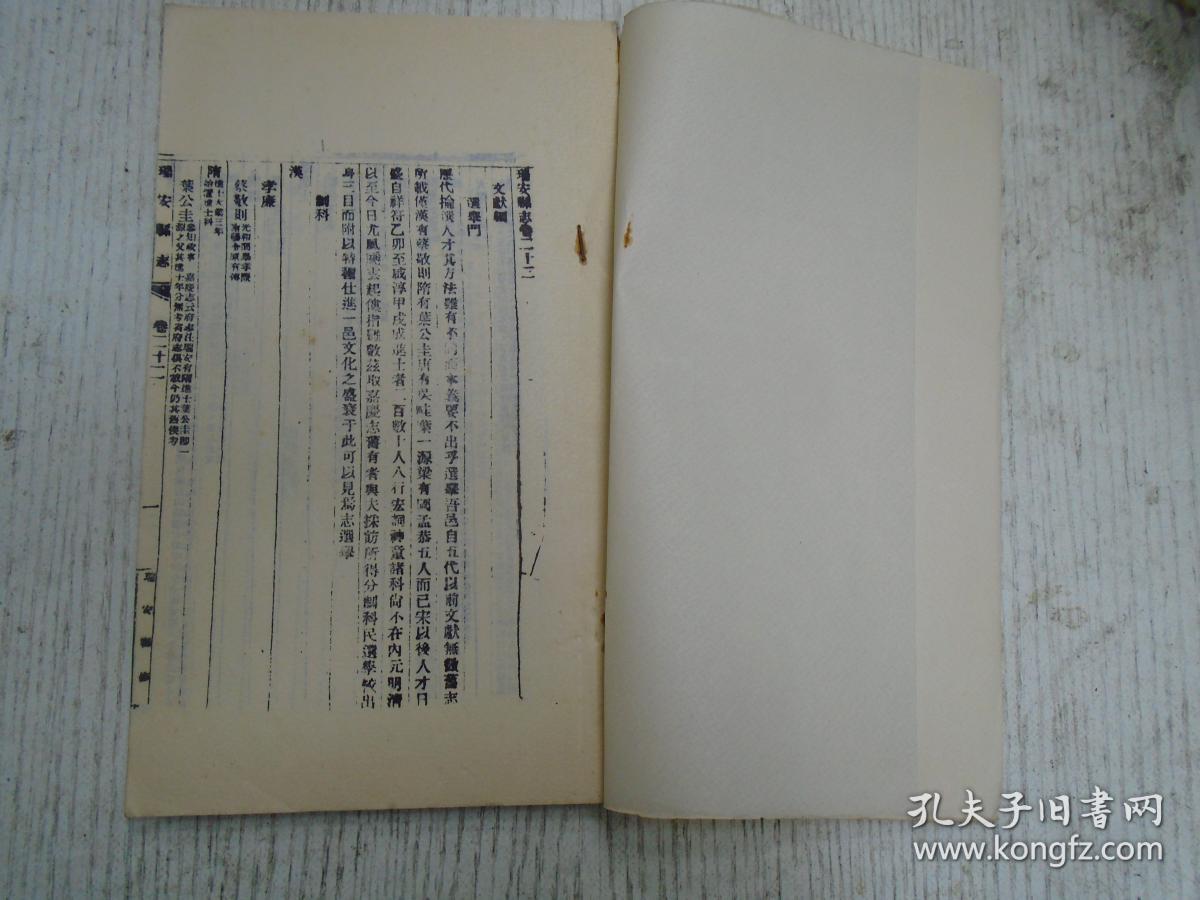 瑞安縣志卷二十二
文獻編
選舉門
歷代掄選人才其方法雖有不同而本義要不出乎選舉吾邑自五代以前文獻無徵舊志
所載僅漢有蔡敬則隋有葉公圭唐有吳畦葉一源梁有國孟恭五人而已宋以後人才日
盛自祥符乙卯至咸淳甲戌成進士者二百數十人八行宏詞神童諸科尚不在內元明清
以至今日尤風飈雲起僂指難數茲取嘉慶志舊有者與夫採訪所得分制科民選學校出
身三目而附以特種仕進一邑文化之盛衰于此可以見焉志選舉
制科
漢
孝廉
蔡敬則
隋
葉公圭
瑞安縣志
卷二十二
一
孔夫子旧书网
www.kongfz.com